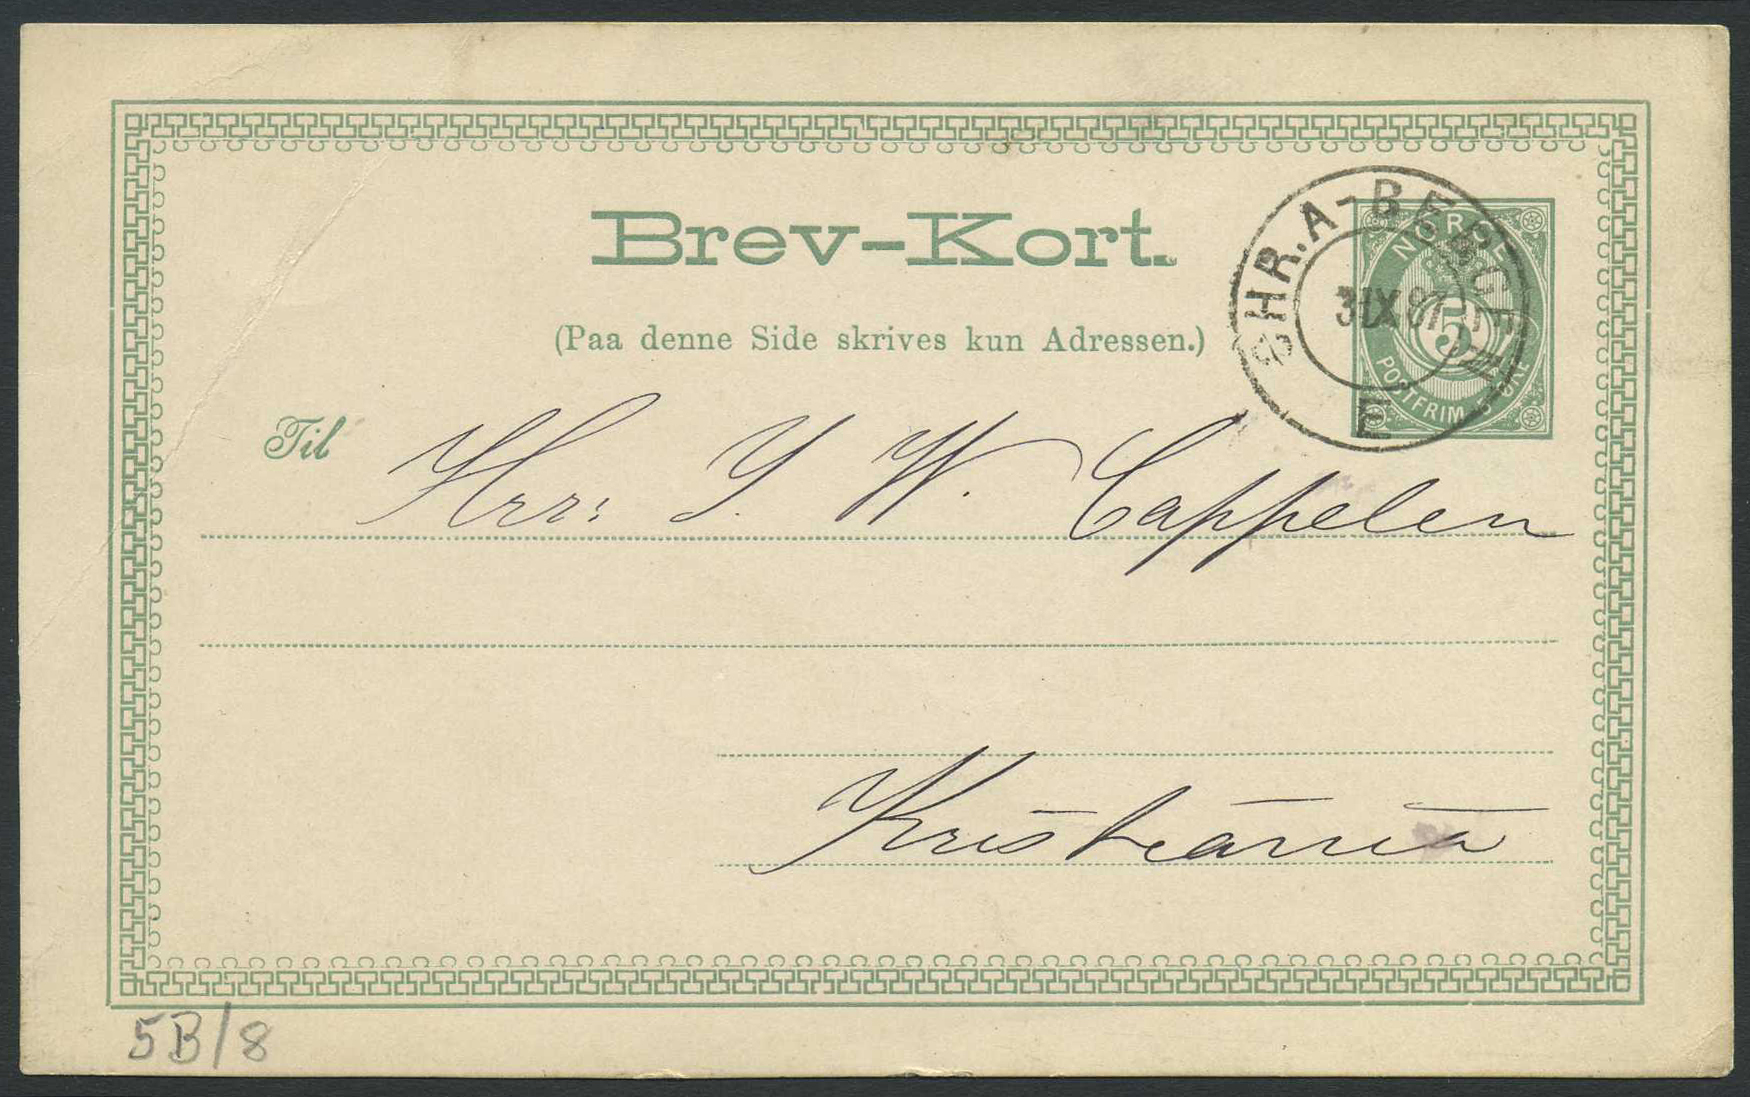 Brev-Kort.
CHR.A-BERGE
3 IX 87
III
E
NORGE
5
POSTFRIM. 5 ØRE
(Paa denne Side skrives kun Adressen.)
Til Hrr: J. W. Cappelen
Kristiania
5B/8